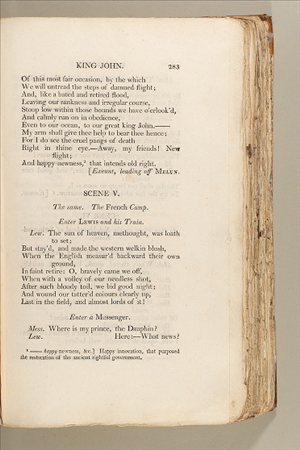 KING JOHN. 283
Of this most fair occasion, by the which
We will untread the steps of damned flight;
And, like a bated and retired flood,
Leaving our rankness and irregular course,
Stoop low within those bounds we have o'erlook'd,
And calmly run on in obedience,
Even to our ocean, to our great king John.——
My arm shall give thee help to bear thee hence;
For I do see the cruel pangs of death
Right in thine eye.—Away, my friends! New
flight;
And happy newness,⁸ that intends old right.
[Exeunt, leading off MELUN.
SCENE V.
The same. The French Camp.
Enter LEWIS and his Train.
Lew. The sun of heaven, methought, was loath
to set;
But stay'd, and made the western welkin blush,
When the English measur'd backward their own
ground,
In faint retire: O, bravely came we off,
When with a volley of our needless shot,
After such bloody toil, we bid good night;
And wound our tatter'd colours clearly up,
Last in the field, and almost lords of it!
Enter a Messenger.
Mess. Where is my prince, the Dauphin?
Lew. Here:—What news?
⁸ —— happy newness, &c.] Happy innovation, that purposed
the restoration of the ancient rightful government.